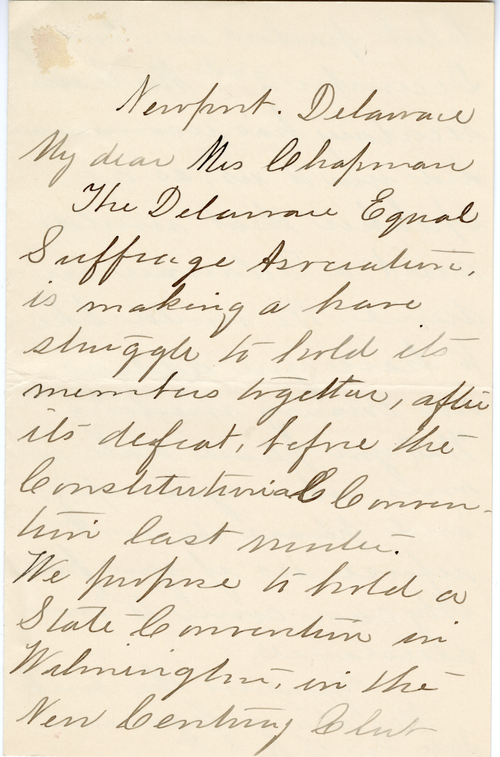 Newport. Delaware
My dear Mrs Chapman
The Delaware Equal
Suffrage Association,
is making a hard
struggle to hold its
members together, after
its defeat, before the
Constitutional Conven-
tion last winter.
We propose to hold a
State Convention in
Wilmington, in the
New Century Club